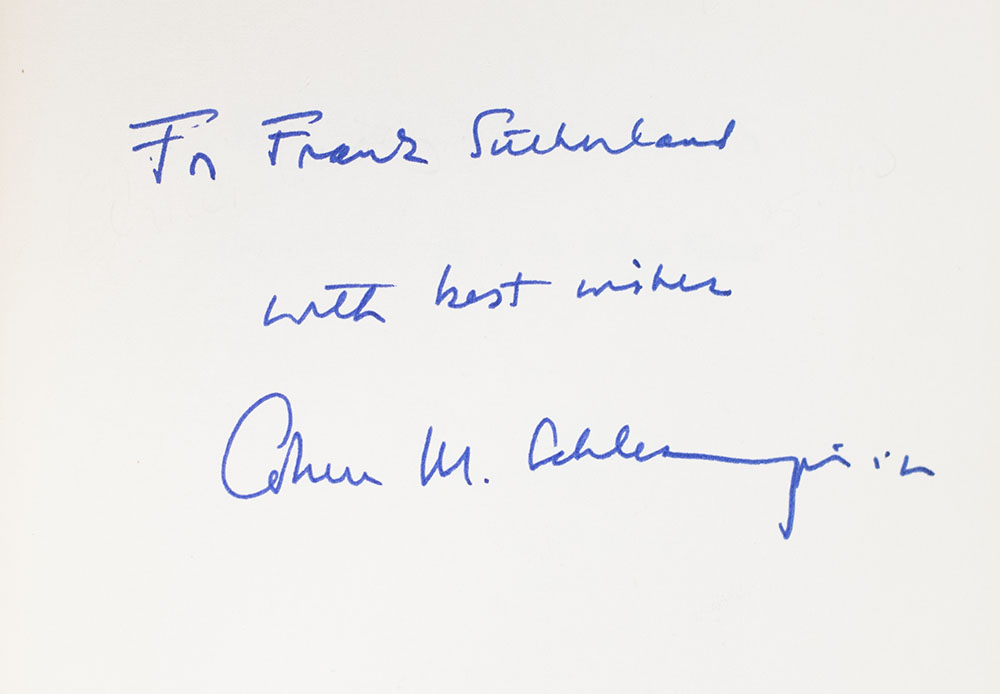 For Frank Sutherland
with best wishes
Arthur M. Schlesinger, jr